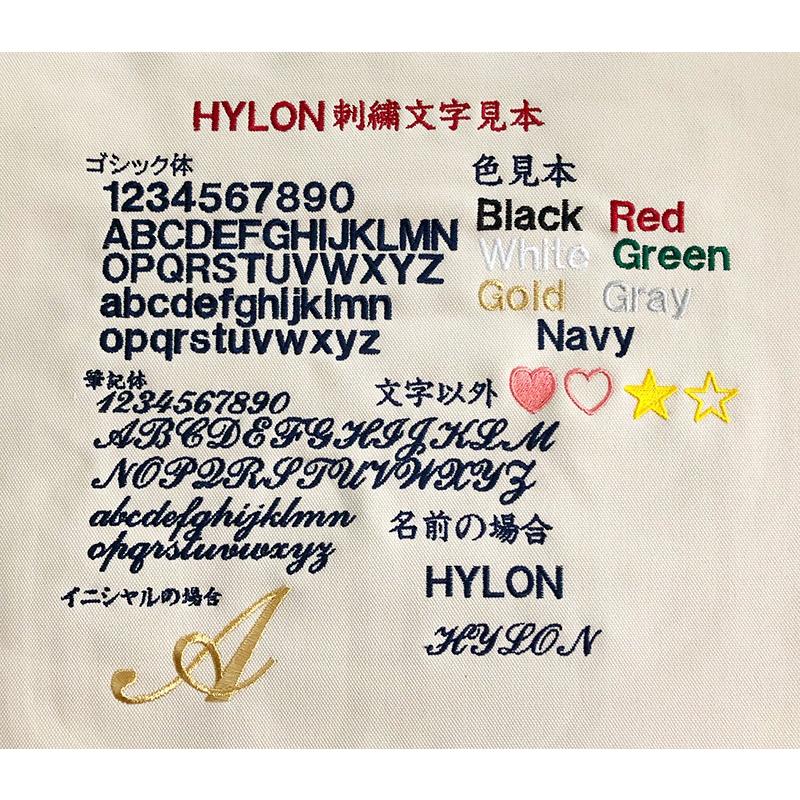 HYLON刺繍文字見本
ゴシック体
1234567890
ABCDEFGHIJKLMN
OPQRSTUVWXYZ
abcdefghijklmn
opqrstuvwxyz
色見本
Black Red
White Green
Gold Gray
Navy
筆記体
1234567890
ABCDEFGHIJKLM
NOPQRSTUVWXYZ
abcdefghijklmn
opqrstuvwxyz
文字以外
名前の場合
HYLON
HYLON
イニシャルの場合
A